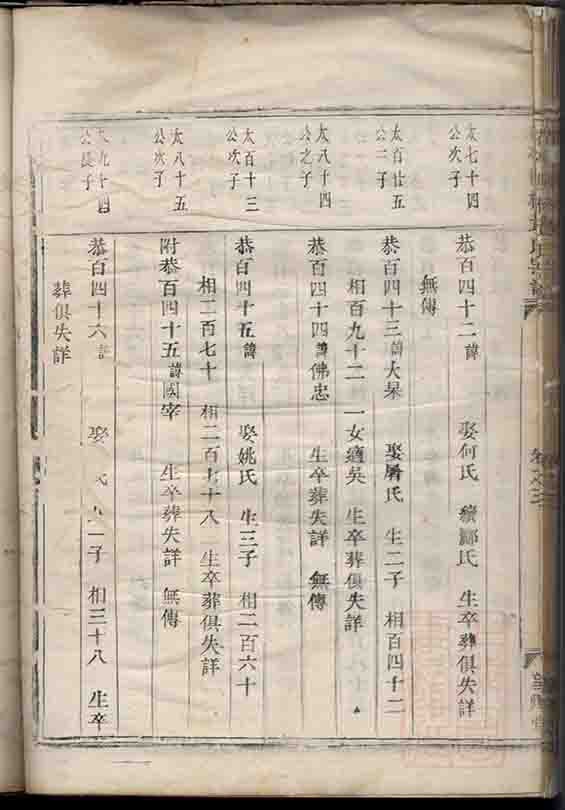 太七十四
公次子
恭百四十二諱　娶何氏　續鄒氏　生卒葬俱失詳
無傳
太百廿五
公二子
恭百四十三諱大杲　娶屠氏　生二子　相百四十二
相百九十二　一女適吳　生卒葬俱失詳
太八十四
公之子
恭百四十四諱佛忠　生卒葬失詳　無傳
太百十三
公次子
恭百四十五諱　娶姚氏　生三子　相二百六十
相二百七十　相二百七十八　生卒葬俱失詳
太八十五
公次子
附恭百四十五諱國宰　生卒葬失詳　無傳
九十四
公長子
恭百四十六諱　娶　氏　一子　相三十八　生卒
葬俱失詳